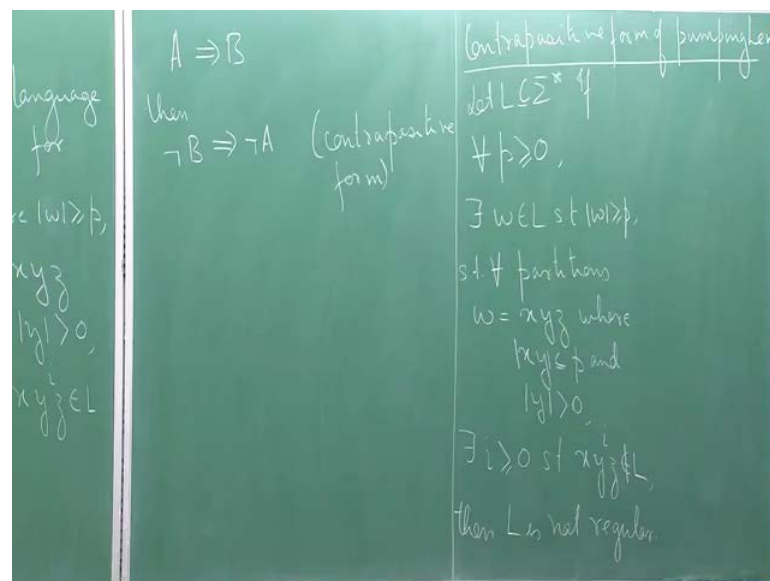 language
for
|w|≥p,
xyz
|y|>0,
xyⁱz∈L
A ⇒ B
then
¬B ⇒ ¬A (contrapositive
form)
Contrapositive form of pumping
Let L⊆Σ* if
∀ p≥0,
∃ w∈L st |w|≥p,
st ∀ partitions
w = xyz where
|xy|≤p and
|y|>0,
∃ i≥0 st xyⁱz∉L,
then L is not regular.